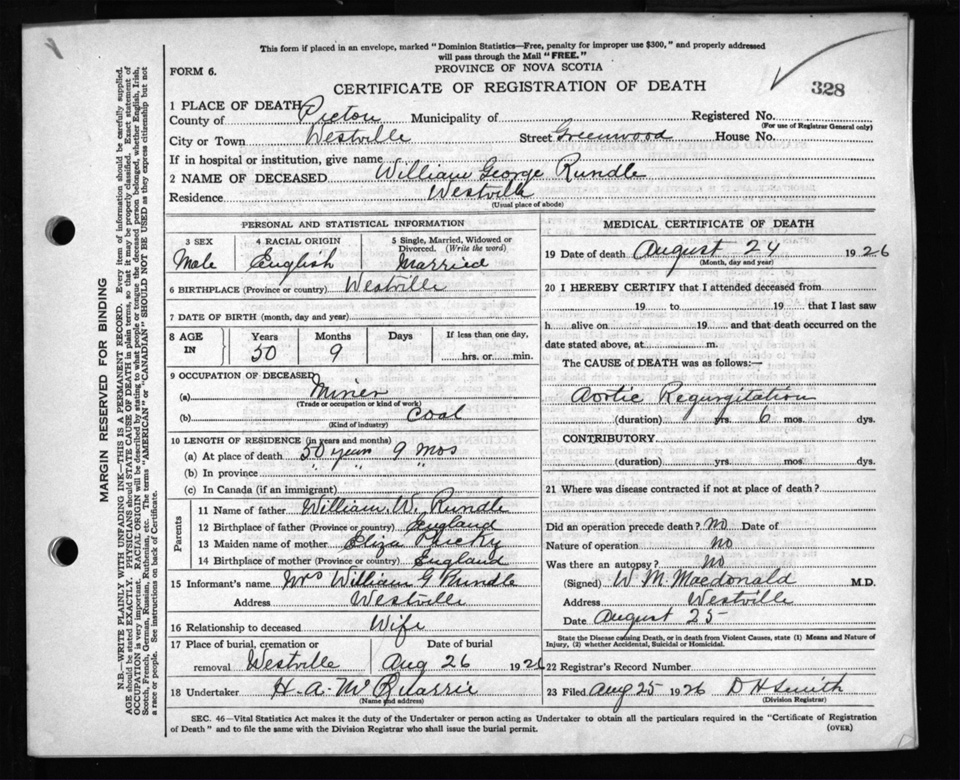 This form if placed in an envelope, marked "Dominion Statistics—Free, penalty for improper use $300," and properly addressed
will pass through the Mail "FREE."
PROVINCE OF NOVA SCOTIA
FORM 6.
CERTIFICATE OF REGISTRATION OF DEATH
328
1 PLACE OF DEATH
County of Pictou Municipality of Registered No.
(For use of Registrar General only)
City or Town Westville Street Greenwood House No.
If in hospital or institution, give name
2 NAME OF DECEASED William George Rundle
Residence Westville
(Usual place of abode)
PERSONAL AND STATISTICAL INFORMATION
3 SEX
Male
4 RACIAL ORIGIN
English
5 Single, Married, Widowed or
Divorced. (Write the word)
Married
6 BIRTHPLACE (Province or country) Westville
7 DATE OF BIRTH (month, day and year)
8 AGE IN
Years Months Days If less than one day,
50 9 hrs. or min.
9 OCCUPATION OF DECEASED
(a) Miner
(Trade or occupation or kind of work)
(b) Coal
(Kind of industry)
10 LENGTH OF RESIDENCE (in years and months)
(a) At place of death 50 years 9 mos
(b) In province " " " "
(c) In Canada (if an immigrant)
Parents
11 Name of father William. W. Rundle
12 Birthplace of father (Province or country) England
13 Maiden name of mother Eliza
14 Birthplace of mother (Province or country) England
15 Informant's name Mrs William G Rundle
Address Westville
16 Relationship to deceased Wife
17 Place of burial, cremation or
removal Westville
Date of burial
Aug 26 1926
18 Undertaker H. A. McQuarrie
(Name and address)
MEDICAL CERTIFICATE OF DEATH
19 Date of death August 24 1926
(Month, day and year)
20 I HEREBY CERTIFY that I attended deceased from
19 to 19 that I last saw
h alive on 19 and that death occurred on the
date stated above, at m.
The CAUSE of DEATH was as follows:—
Aortic Regurgitation
(duration) yrs. 6 mos. dys.
CONTRIBUTORY.
(duration) yrs. mos. dys.
21 Where was disease contracted if not at place of death?
Did an operation precede death? No Date of
Nature of operation No
Was there an autopsy? No
(Signed) W. M. Macdonald M.D.
Address Westville
Date August 25
State the Disease causing Death, or in death from Violent Causes, state (1) Means and Nature of
Injury, (2) whether Accidental, Suicidal or Homicidal.
22 Registrar's Record Number
23 Filed Aug 25 1926 D H Smith
(Division Registrar)
SEC. 46—Vital Statistics Act makes it the duty of the Undertaker or person acting as Undertaker to obtain all the particulars required in the "Certificate of Registration
of Death" and to file the same with the Division Registrar who shall issue the burial permit.
(OVER)
MARGIN RESERVED FOR BINDING
N.B.—WRITE PLAINLY WITH UNFADING INK—THIS IS A PERMANENT RECORD. Every item of information should be carefully supplied.
AGE should be stated EXACTLY. PHYSICIANS should STATE CAUSE OF DEATH in plain terms, so that it may be properly classified. Exact statement of
OCCUPATION is very important. RACIAL ORIGIN will be described by stating to what people or tongue the deceased person belonged, whether English, Irish,
Scotch, French, German, Russian, Ruthenian, etc. The terms "AMERICAN" or "CANADIAN" SHOULD NOT BE USED as they express citizenship but not
a race or people. See instructions on back of Certificate.